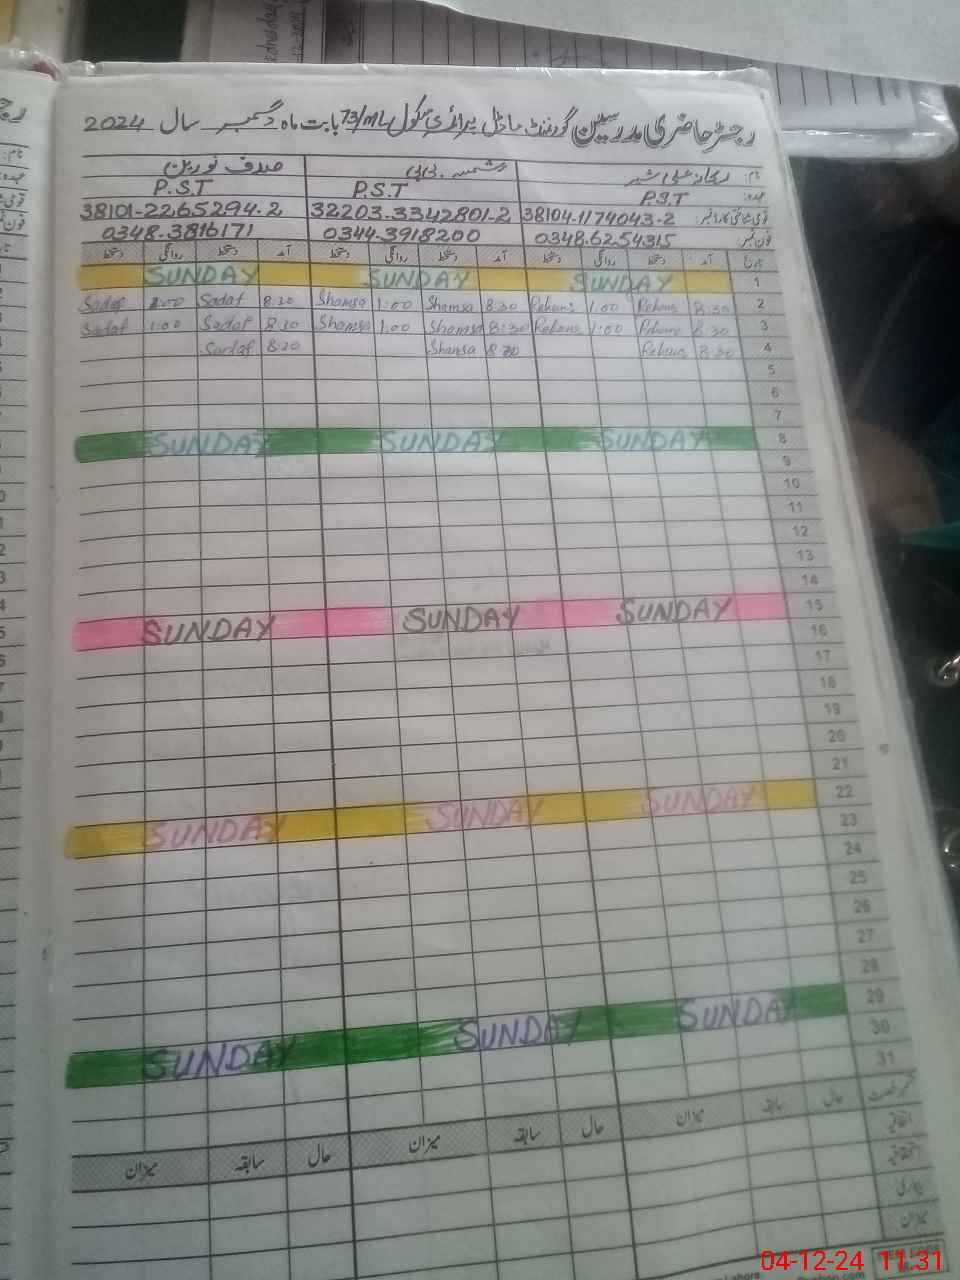 رجسٹر حاضری مدرسین گورنمنٹ ماڈل پرائمری سکول 73/ML بابت ماہ دسمبر سال 2024
نام: ریحانہ شمسہ بی بی صدف نورین
عہدہ: P.S.T P.S.T P.S.T
قومی شناختی کارڈ نمبر: 38104-1174043-2 32203.3342801-2 38101-2265294.2
فون نمبر: 0348.6254315 0344.3918200 0348.3816171
تاریخ آمد دستخط روانگی دستخط آمد دستخط روانگی دستخط آمد دستخط روانگی دستخط
SUNDAY SUNDAY SUNDAY 1
Sadaf 1:00 Sadaf 8:30 Shamsa 1:00 Shamsa 8:30 Rehana 1:00 Rehana 8:30 2
Sadaf 1:00 Sadaf 8:30 Shamsa 1:00 Shamsa 8:30 Rehana 1:00 Rehana 8:30 3
Sadaf 8:30 Shamsa 8:30 Rehana 8:30 4
5
6
7
SUNDAY SUNDAY SUNDAY 8
9
10
11
12
13
14
SUNDAY SUNDAY SUNDAY 15
16
17
18
19
20
21
SUNDAY SUNDAY SUNDAY 22
23
24
25
26
27
28
SUNDAY SUNDAY SUNDAY 29
30
31
حال سابقہ میزان حال سابقہ میزان حال سابقہ میزان
اتفاقیہ
استحقاقیہ
بیماری
میزان
Lahore
04-12-24 11:31